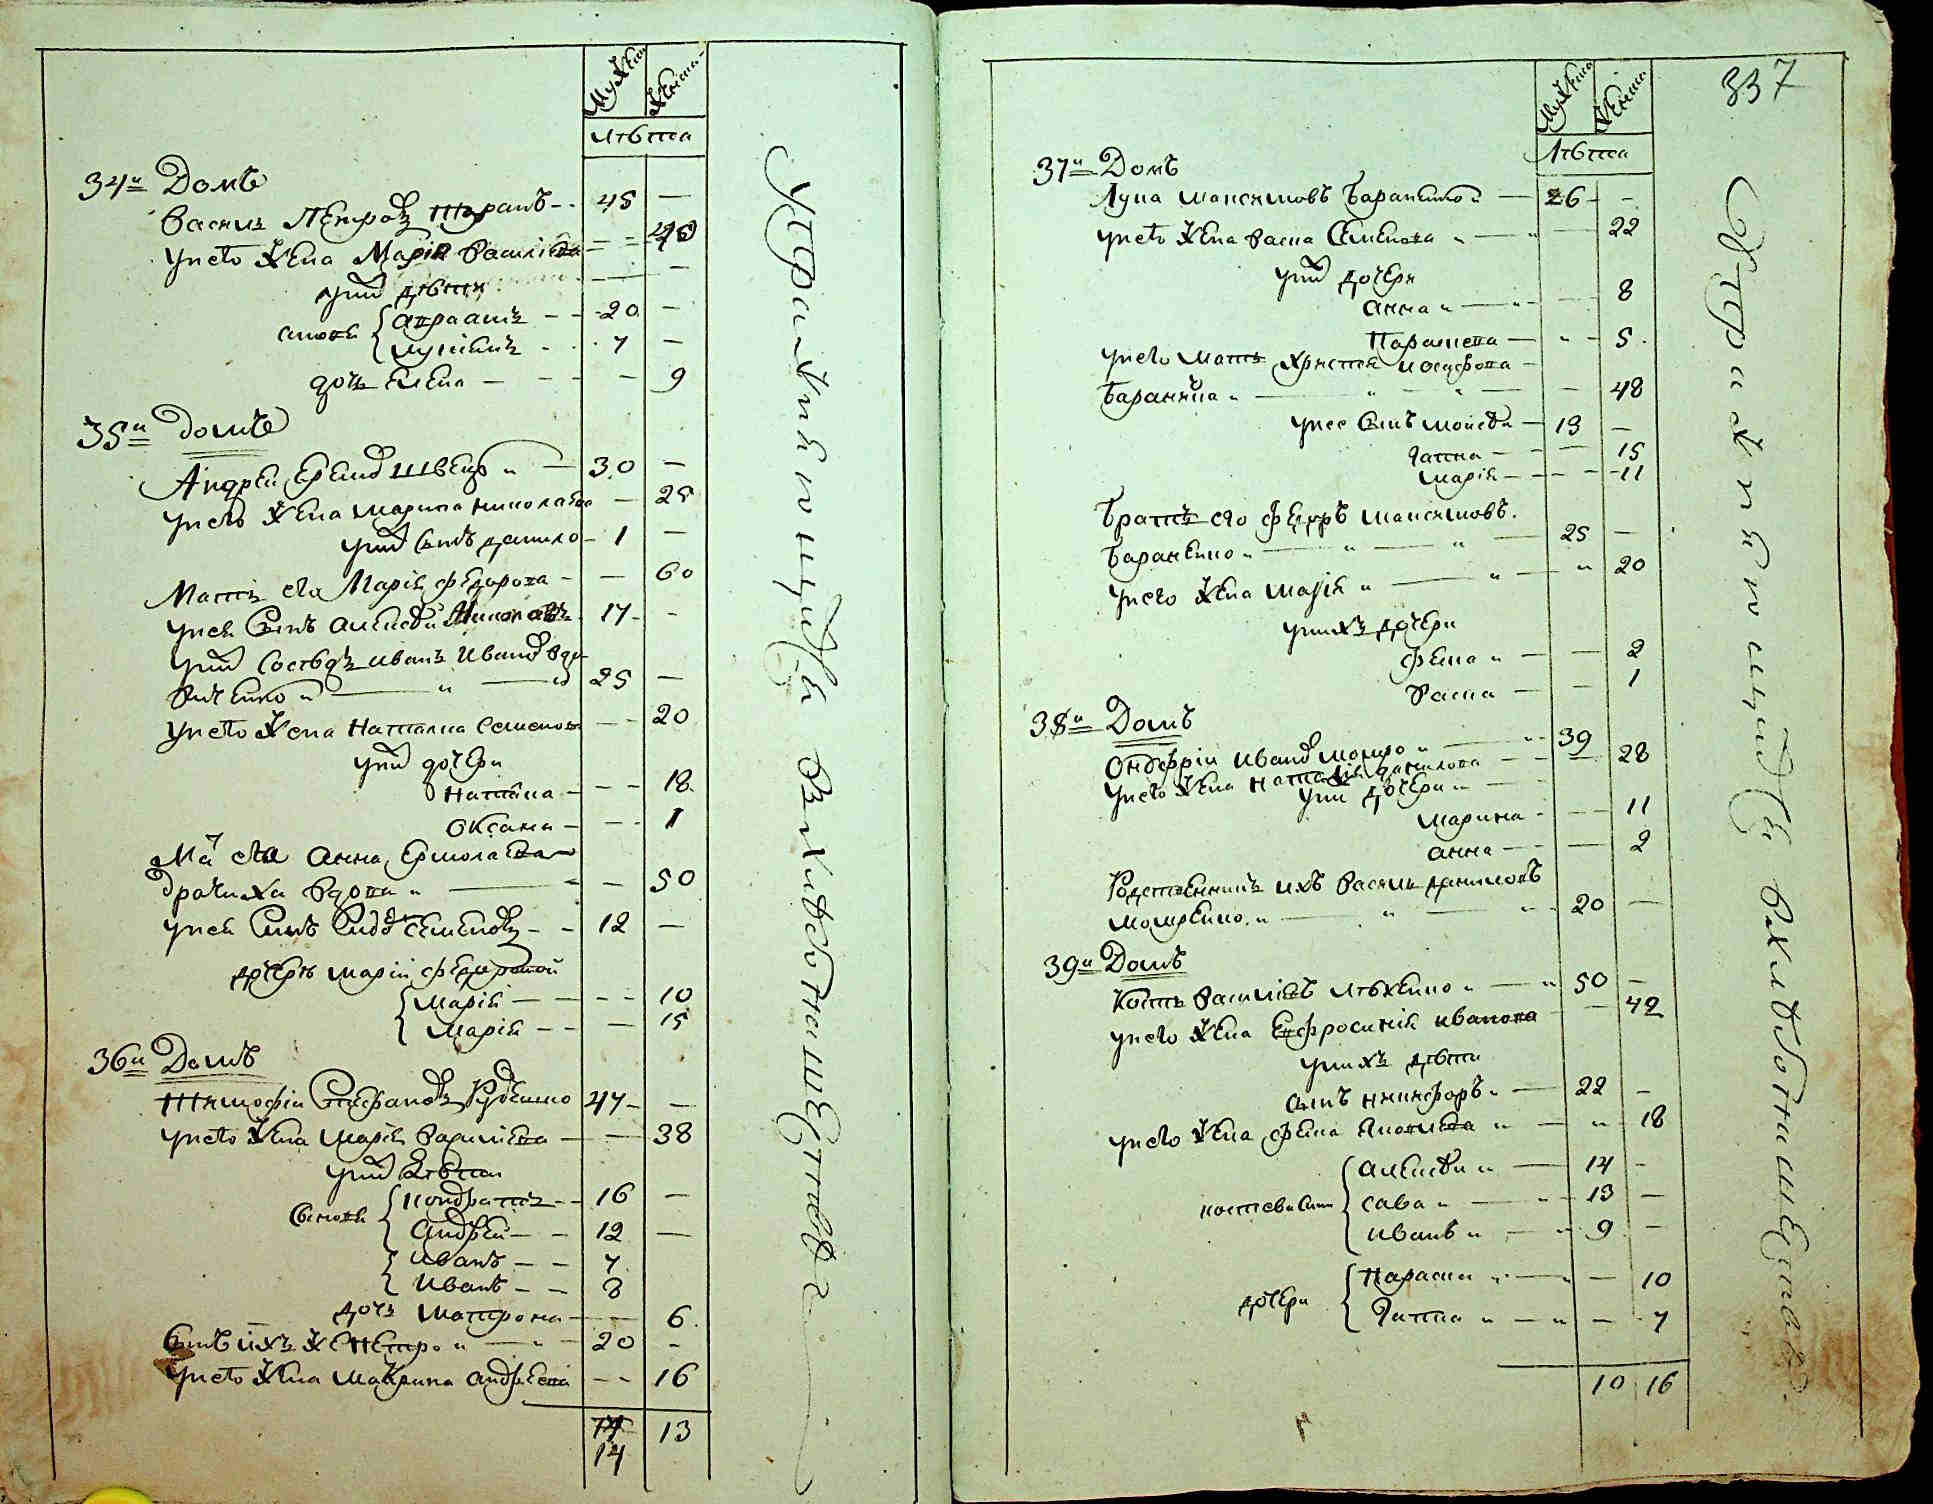 Мужеска
Женска
Лѣта
34й Домъ
Василь Петровъ Таранъ 45 —
Унего Жена Марія Василіева — 40
Унихъ дѣти — —
синовѣ Авраамъ 20 —
Лукіянъ 7 —
дочь Елена — 9
35й домъ
Андрей Ермол Швецъ 30 —
Унего Жена Марина Николаева — 25
Унихъ Синъ Данило 1 —
Мать его Марія Федорова — 60
Унея Синъ Алексѣй Николаевъ 17 —
Унихъ Сосѣдъ Иванъ Иванов
25 —
Унего Жена Наталка Семенова — 20
Унихъ дочери
Наталка — 18
Оксана — 1
Мат его Анна Ермолаева
Драчиха вдова — 50
Унея Синъ Семеновъ 12 —
дочери Маріи Федоровой
Марія — 10
Марія — 15
36й Домъ
Тимофій Стефановъ Руденко 47 —
Унего Жена Марія Василіева — 38
Унихъ Дѣти
Синовѣ Кондратъ 16 —
Андрей 12 —
Иванъ 7
Иванъ 8
дочь Матрона — 6
Синъ ихъ же Петро 20 —
Унего Жена Макрина Андреева — 16
14 13
14
Упражняющійся въ хлѣбопашествѣ
337
Мужеска
Женска
Лѣта
37й Домъ
Лука Максимовъ Бараненко 26 —
Унего Жена Васса Семенова — 22
Унихъ дочери
Анна — 8
Параскева — 5
Унего Мать Христя Иосифова
Бараниха — 48
Унее Синъ Моисѣй 13 —
Гапка — 15
Марія — 11
Братъ его Федоръ Максимовъ
Бараненко 25 —
Унего Жена Марія — 20
Унихъ дочери
Фекла — 2
Васса — 1
38й Домъ
Онофрій Иванов 39
Унего Жена Наталія Данилова — 28
Унихъ дочери
Марина — 11
Анна — 2
Родственникъ ихъ Василь Даниловъ
20 —
39й Домъ
Кость Василіевъ Лѣхенко 50 —
Унего Жена Евфросинія Иванова — 42
Унихъ дѣти
Синъ Никифоръ 22 —
Унего Жена Фекла Яковлева — 18
Алексѣй 14 —
Костеви Сини Сава 13 —
Иванъ 9 —
дочери Параска — 10
Гапка — 7
10 16
Упражняющійся въ хлѣбопашествѣ